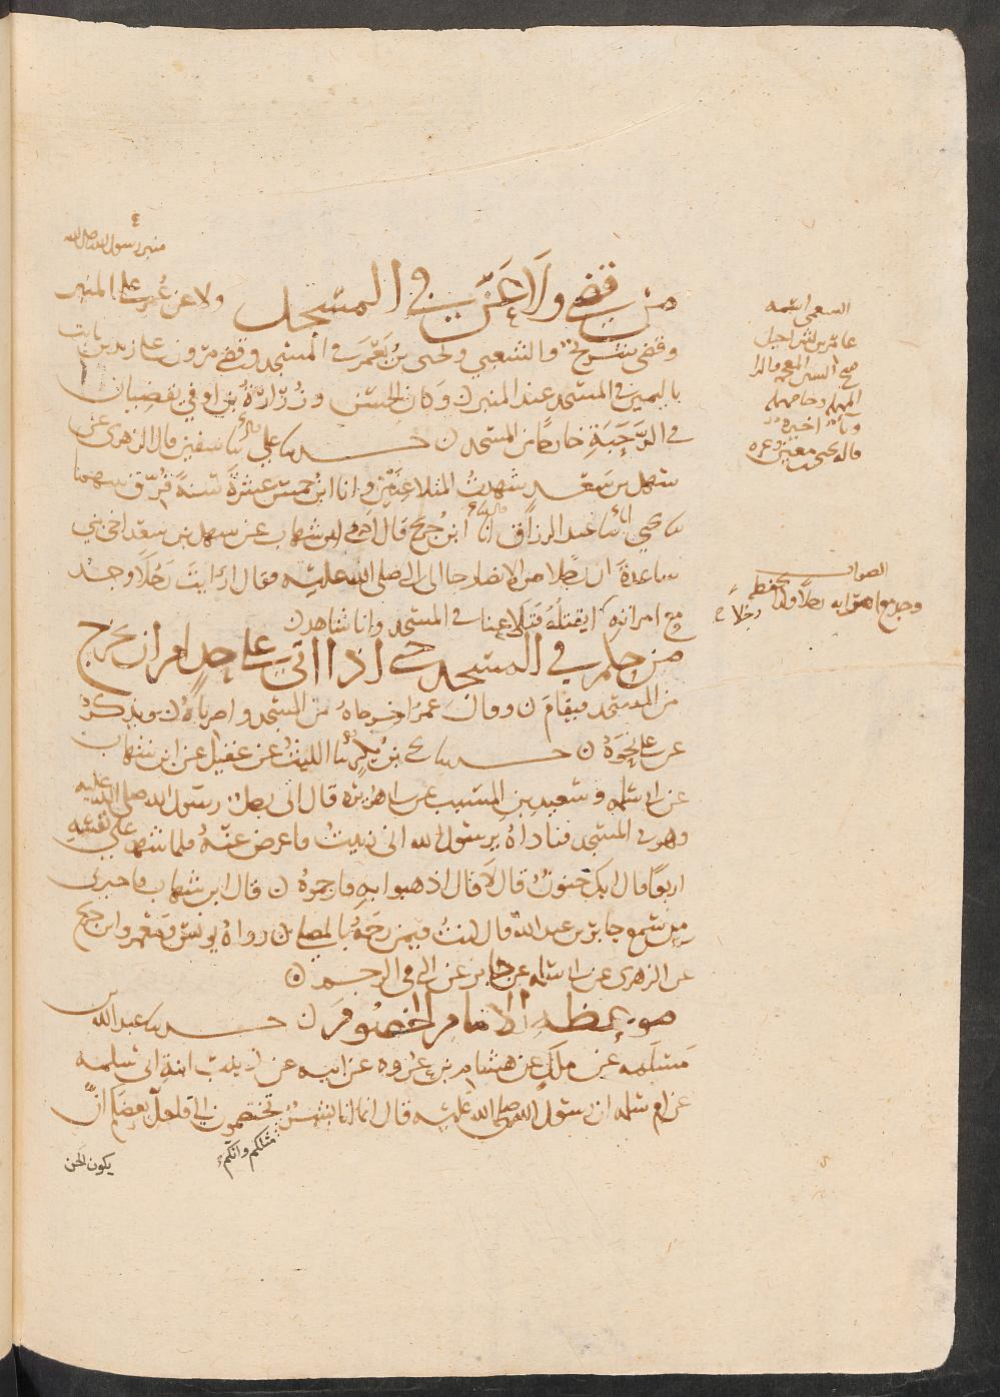 منبر رسول الله صلى الله
من قضى ولاعن في المسجد ولاعن عمر على المنبر
وقضى شريح والشعبي ويحيى بن يعمر في المسجد وقضى مرون على زيد بن ثابت
باليمين في المسجد عند المنبر ن وكان الحسن وزرارة بن اوفى يقضيان
في الرحبة خارجا من المسجد ن حدثنا علي نا سفين قال الزهري عن
سهل بن سعد شهدت المتلاعنين وانا ابن خمس عشرة سنة فرق بينهما
نا يحيى نا عبد الرزاق انا ابن جريج قال اخبرني ابن شهاب عن سهل بن سعد اخي بني
ساعدة ان رجلا من الانصار جا الى النبي صلى الله عليه فقال ارايت رجلا وجد
مع امراته رجلا ايقتله فتلاعنا في المسجد وانا شاهد ن
من حكم في المسجد حتى اذا اتى على حد امر ان يخرج
من المسجد فيقام ن وقال عمر اخرجاه من المسجد واضرباه ن ويذكر
عن علي نحوه ن حدثنا يحيى بن بكير نا الليث عن عقيل عن ابن شهاب
عن ابي سلمه وسعيد بن المسيب عن ابي هريره قال اتى رجل رسول الله صلى الله عليه
وهو في المسجد فناداه يرسول الله اني زنيت فاعرض عنه فلما شهد على نفسه
اربعا قال ابك جنون قال لا قال اذهبوا به فارجموه ن قال ابن شهاب فاخبرني
من سمع جابر بن عبد الله قال كنت فيمن رجمه بالمصلى ن رواه يونس ومعمر وابن جريج
عن الزهري عن ابي سلمه عن جابر عن النبي في الرجم ن
موعظة الامام الخصوم ن حدثنا عبد الله بن
مسلمه عن ملك عن هشام بن عروه عن ابيه عن زينب ابنة ابي سلمه
عن ام سلمه ان رسول الله صلى الله عليه قال انما انا بشر وانكم تختصمون الي فلعل بعضكم ان
مثلكم وانكم
يكون الحن
الشعبي اسمه
عامر بن شراحيل
الصواب